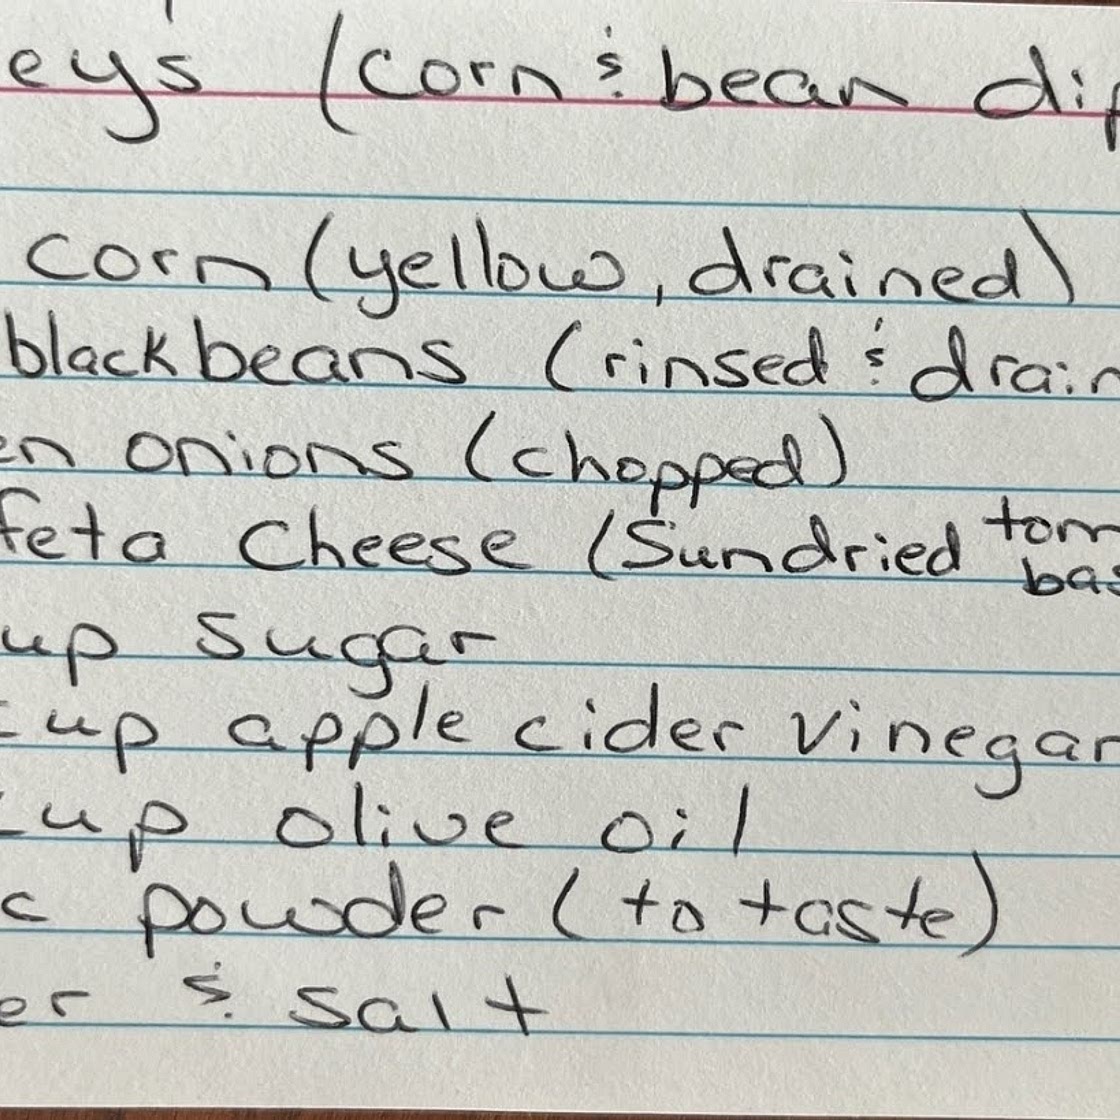 ey's (corn & bean dip
corn (yellow, drained)
blackbeans (rinsed & drain
en onions (chopped)
feta cheese (Sundried tom
bas
up sugar
cup apple cider vinegar
cup olive oil
c powder (to taste)
er & salt